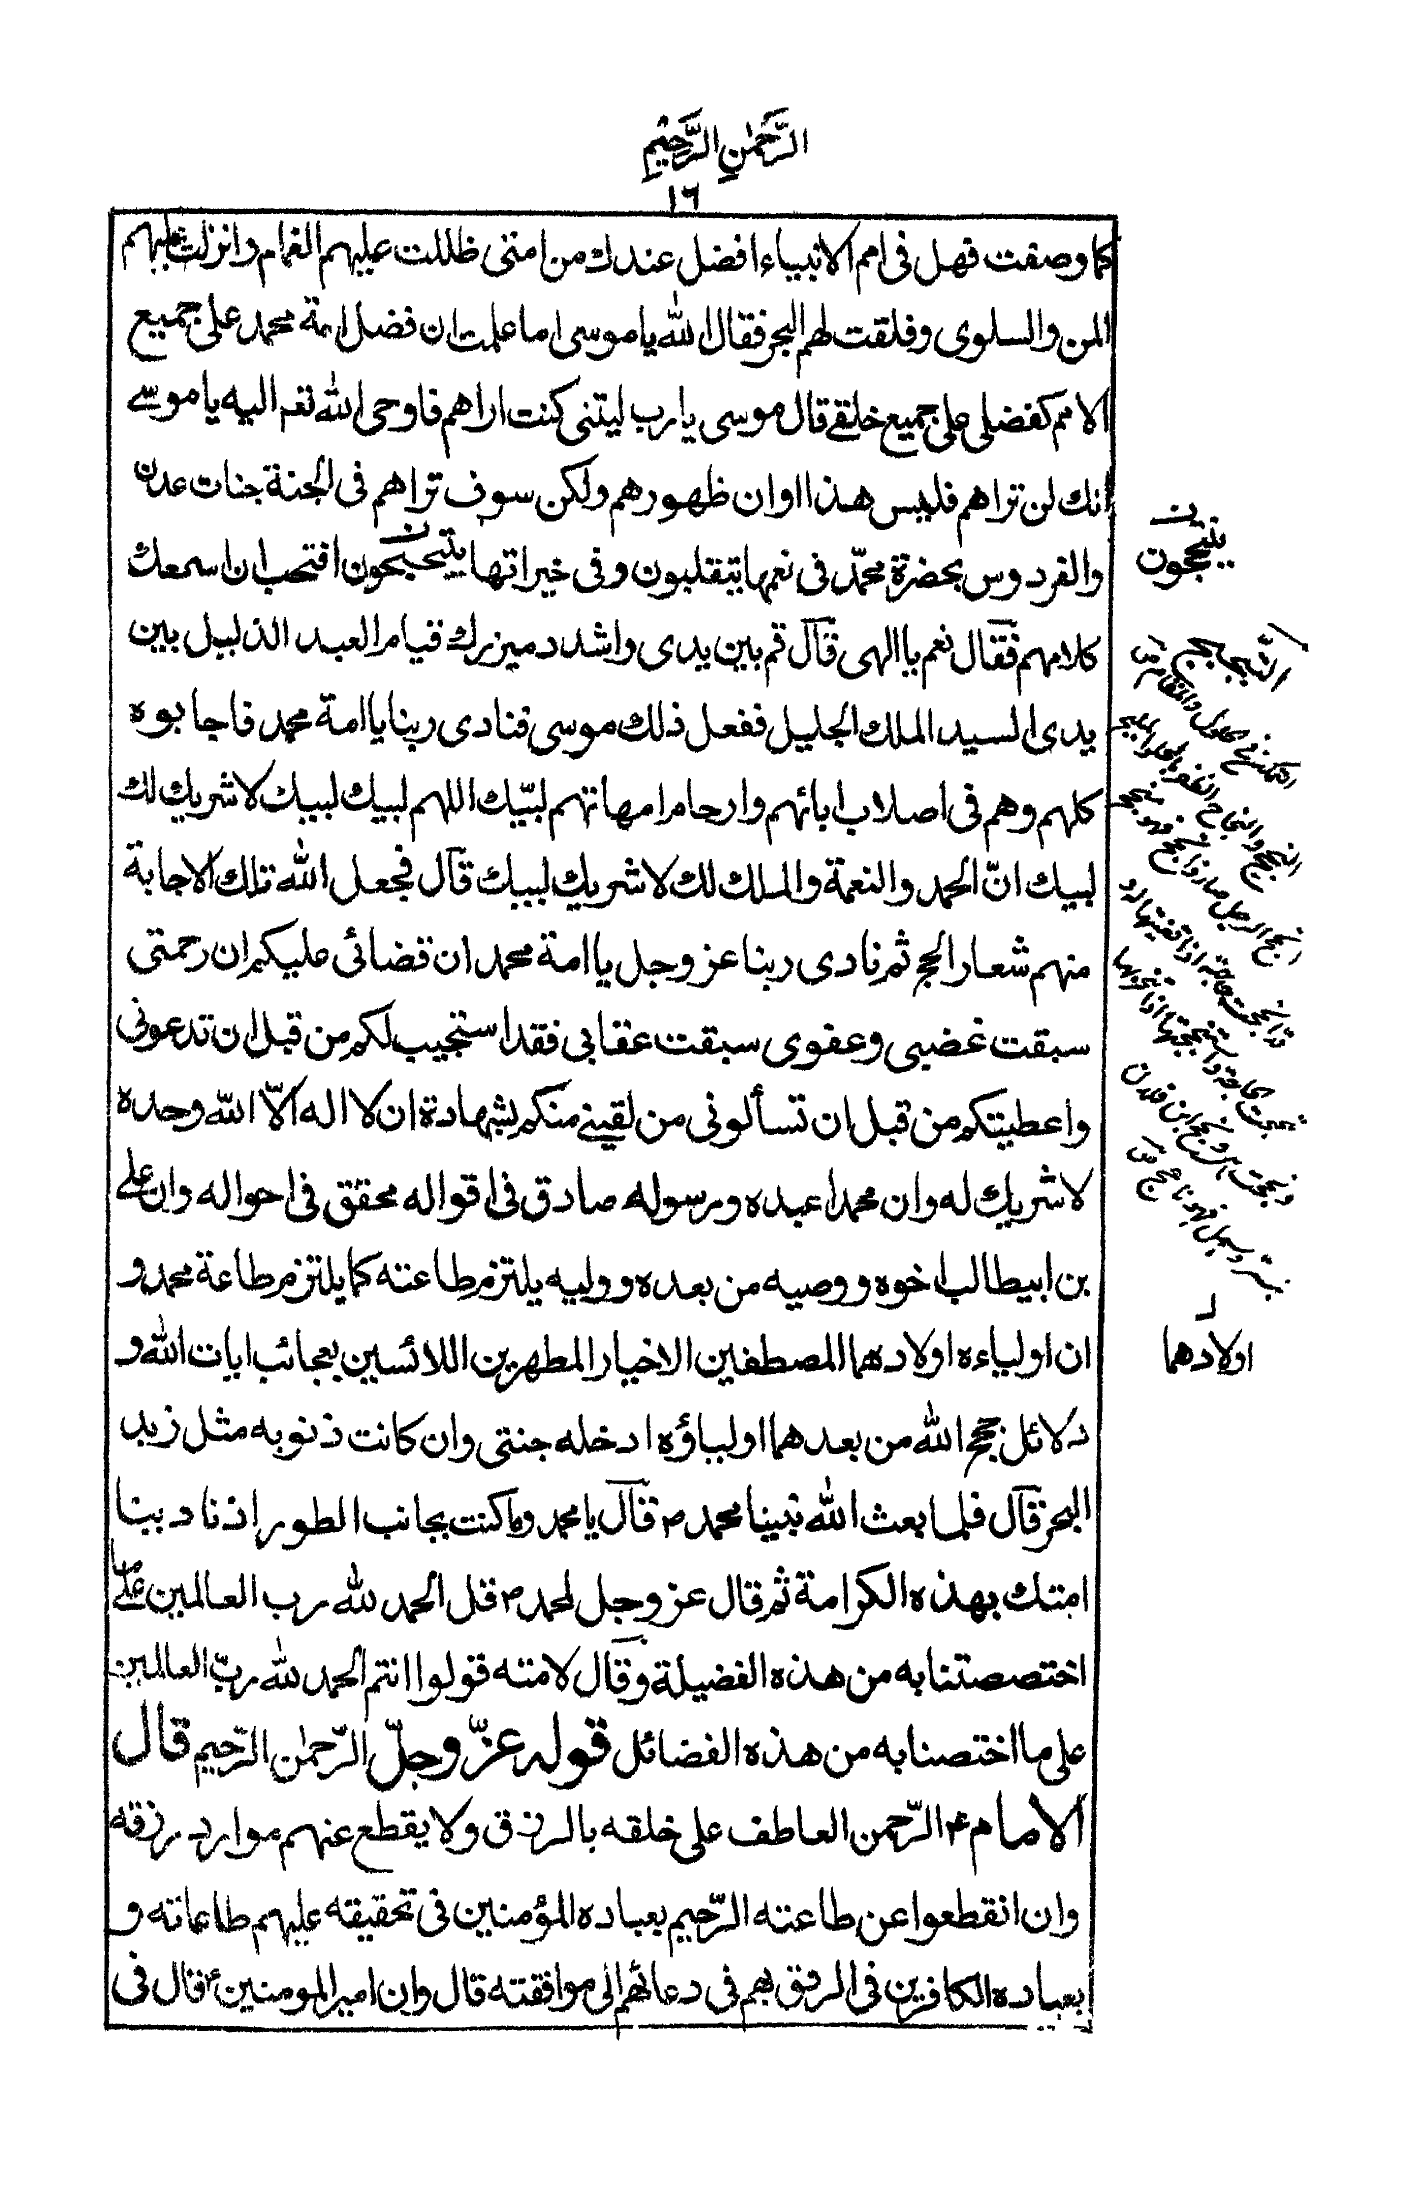 الرَّحْمٰنِ الرَّحِيْمِ
١٦
كما وصفت فهل فى امم الانبياء افضل عندك من امتى ظللت عليهم الغمام وانزلت عليهم
المن والسلوى وفلقت لهم البحر فقال الله يا موسى اما علمت ان فضل امة محمد على جميع
الامم كفضلى على جميع خلقى قال موسى يا رب ليتنى كنت اراهم فاوحى الله تعم اليه يا موسى
انك لن تراهم فليس هذا اوان ظهورهم ولكن سوف تراهم فى الجنة جنات عدن
والفردوس بحضرة محمّد فى نعمها يتقلبون وفى خيراتها يتبحبحون افتحب ان اسمعك
كلامهم فقال نعم يا الهى قال قم بين يدى واشدد ميزرك قيام العبد الذليل بين
يدى السيد الملك الجليل ففعل ذلك موسى فنادى ربنا يا امة محمد فاجابوه
كلهم وهم فى اصلاب ابائهم وارحام امهاتهم لبّيك اللهم لبيك لبيك لا شريك لك
لبيك انّ الحمد والنعمة والملك لك لا شريك لبيك قال فجعل الله تلك الاجابة
منهم شعار الحج ثم نادى ربنا عز وجل يا امة محمد ان قضائى عليكم ان رحمتى
سبقت غضبى وعفوى سبقت عقابى فقد استجيب لكم من قبل ان تدعونى
واعطيتكم من قبل ان تسألونى من لقينى منكم بشهادة ان لا اله الّا الله وحده
لا شريك له وان محمدا عبده ورسوله صادق فى اقواله محقق فى احواله وان على
بن ابيطالب اخوه ووصيه من بعده ووليه يلتزم طاعته كما يلتزم طاعة محمد و
ان اولياءه اولادهما المصطفين الاخيار المطهرين اللائسين بعجائب ايات الله و
دلائل حجج الله من بعدهما اولياؤه ادخله جنتى وان كانت ذنوبه مثل زبد
البحر قال فلما بعث الله نبينا محمد ص قال يا محمد وما كنت بجانب الطور اذ نادينا
امتك بهذه الكرامة ثم قال عز وجل لمحمد ص قل الحمد لله رب العالمين على ما
اختصصتنا به من هذه الفضيلة وقال لامته قولوا انتم الحمد لله ربّ العالمين
على ما اختصنا به من هذه الفضائل قوله عزّ وجلّ الرّحمٰن الرّحيم قال
الامام ع الرّحمن العاطف على خلقه بالرزق ولا يقطع عنهم موارد رزقه
وان انقطعوا عن طاعته الرّحيم بعباده المؤمنين فى تحقيقه عليهم طاعاته و
بعباده الكافرين فى الرفق بهم فى دعائهم الى موافقته قال وان امير المومنين ع قال فى
ن
يتبجحون
اولادهما